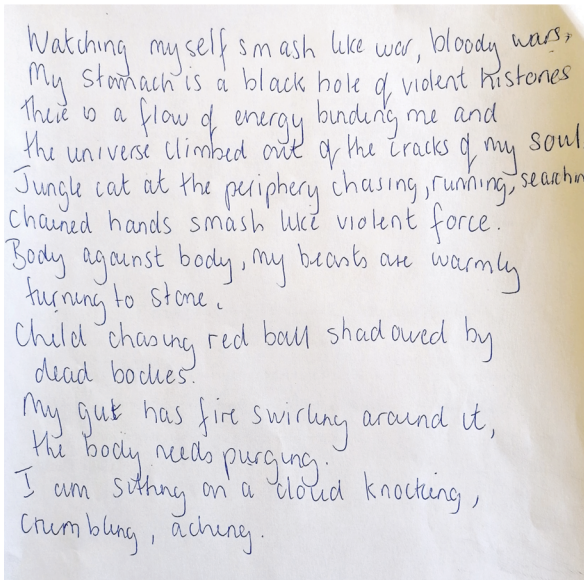 Watching myself smash like war, bloody wars,
My stomach is a black hole of violent histories
there is a flow of energy binding me and
the universe climbed out of the cracks of my soul
Jungle cat at the periphery chasing, running, searchin
Chained hands smash like violent force.
Body against body, my beasts are warmly
turning to stone.
Child chasing red ball shadowed by
dead bodies.
My gut has fire swirling around it,
the body needs purging.
I am sitting on a cloud knocking,
crumbling, aching.